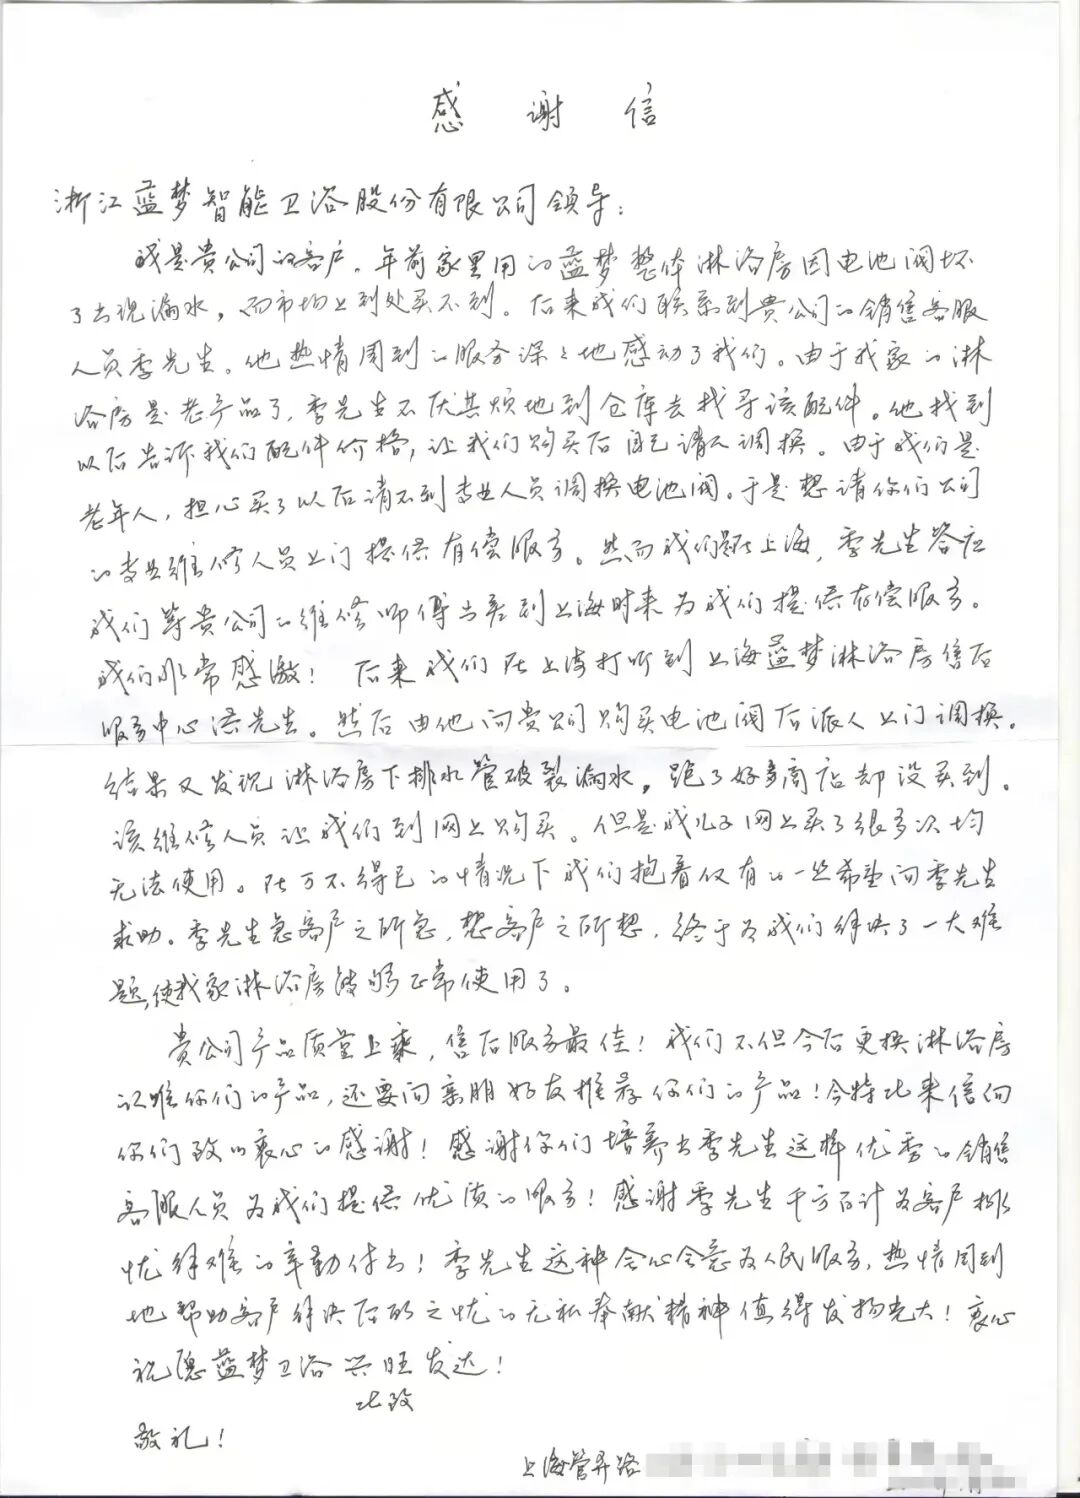 感谢信
浙江蓝梦智能卫浴股份有限公司领导：
我是贵公司的客户。年前家里用的蓝梦整体淋浴房因电池阀坏
了出现漏水，而市场上到处买不到。后来我们联系到贵公司的销售客服
人员季先生。他热情周到的服务深深地感动了我们。由于我家的淋
浴房是老产品了，季先生不厌其烦地到仓库去找寻该配件。他找到
以后告诉我们配件价格，让我们购买后自己请人调换。由于我们是
老年人，担心买了以后请不到专业人员调换电池阀。于是想请你们公司
的专业维修人员上门提供有偿服务。然而我们在上海，季先生答应
我们等贵公司的维修师傅出差到上海时来为我们提供有偿服务。
我们非常感激！后来我们在上海打听到上海蓝梦淋浴房售后
服务中心 先生。然后由他向贵公司购买电池阀后派人上门调换。
结果又发现淋浴房下排水管破裂漏水，跑了好多商店却没买到。
该维修人员让我们到网上购买。但是我儿子网上买了很多次均
无法使用。在万不得已的情况下我们抱着仅有的一丝希望向季先生
求助。季先生急客户之所急，想客户之所想，终于为我们解决了一大难
题，使我家淋浴房能够正常使用了。
贵公司产品质量上乘，售后服务最佳！我们不但今后更换淋浴房
认准你们的产品，还要向亲朋好友推荐你们的产品！今特此来信向
你们致以衷心的感谢！感谢你们培养出季先生这样优秀的销售
客服人员为我们提供优质的服务！感谢季先生千方百计为客户排
忧解难的辛勤付出！季先生这种全心全意为人民服务，热情周到
地帮助客户解决后顾之忧的无私奉献精神值得发扬光大！衷心
祝愿蓝梦卫浴兴旺发达！
此致
敬礼！
上海管弄路